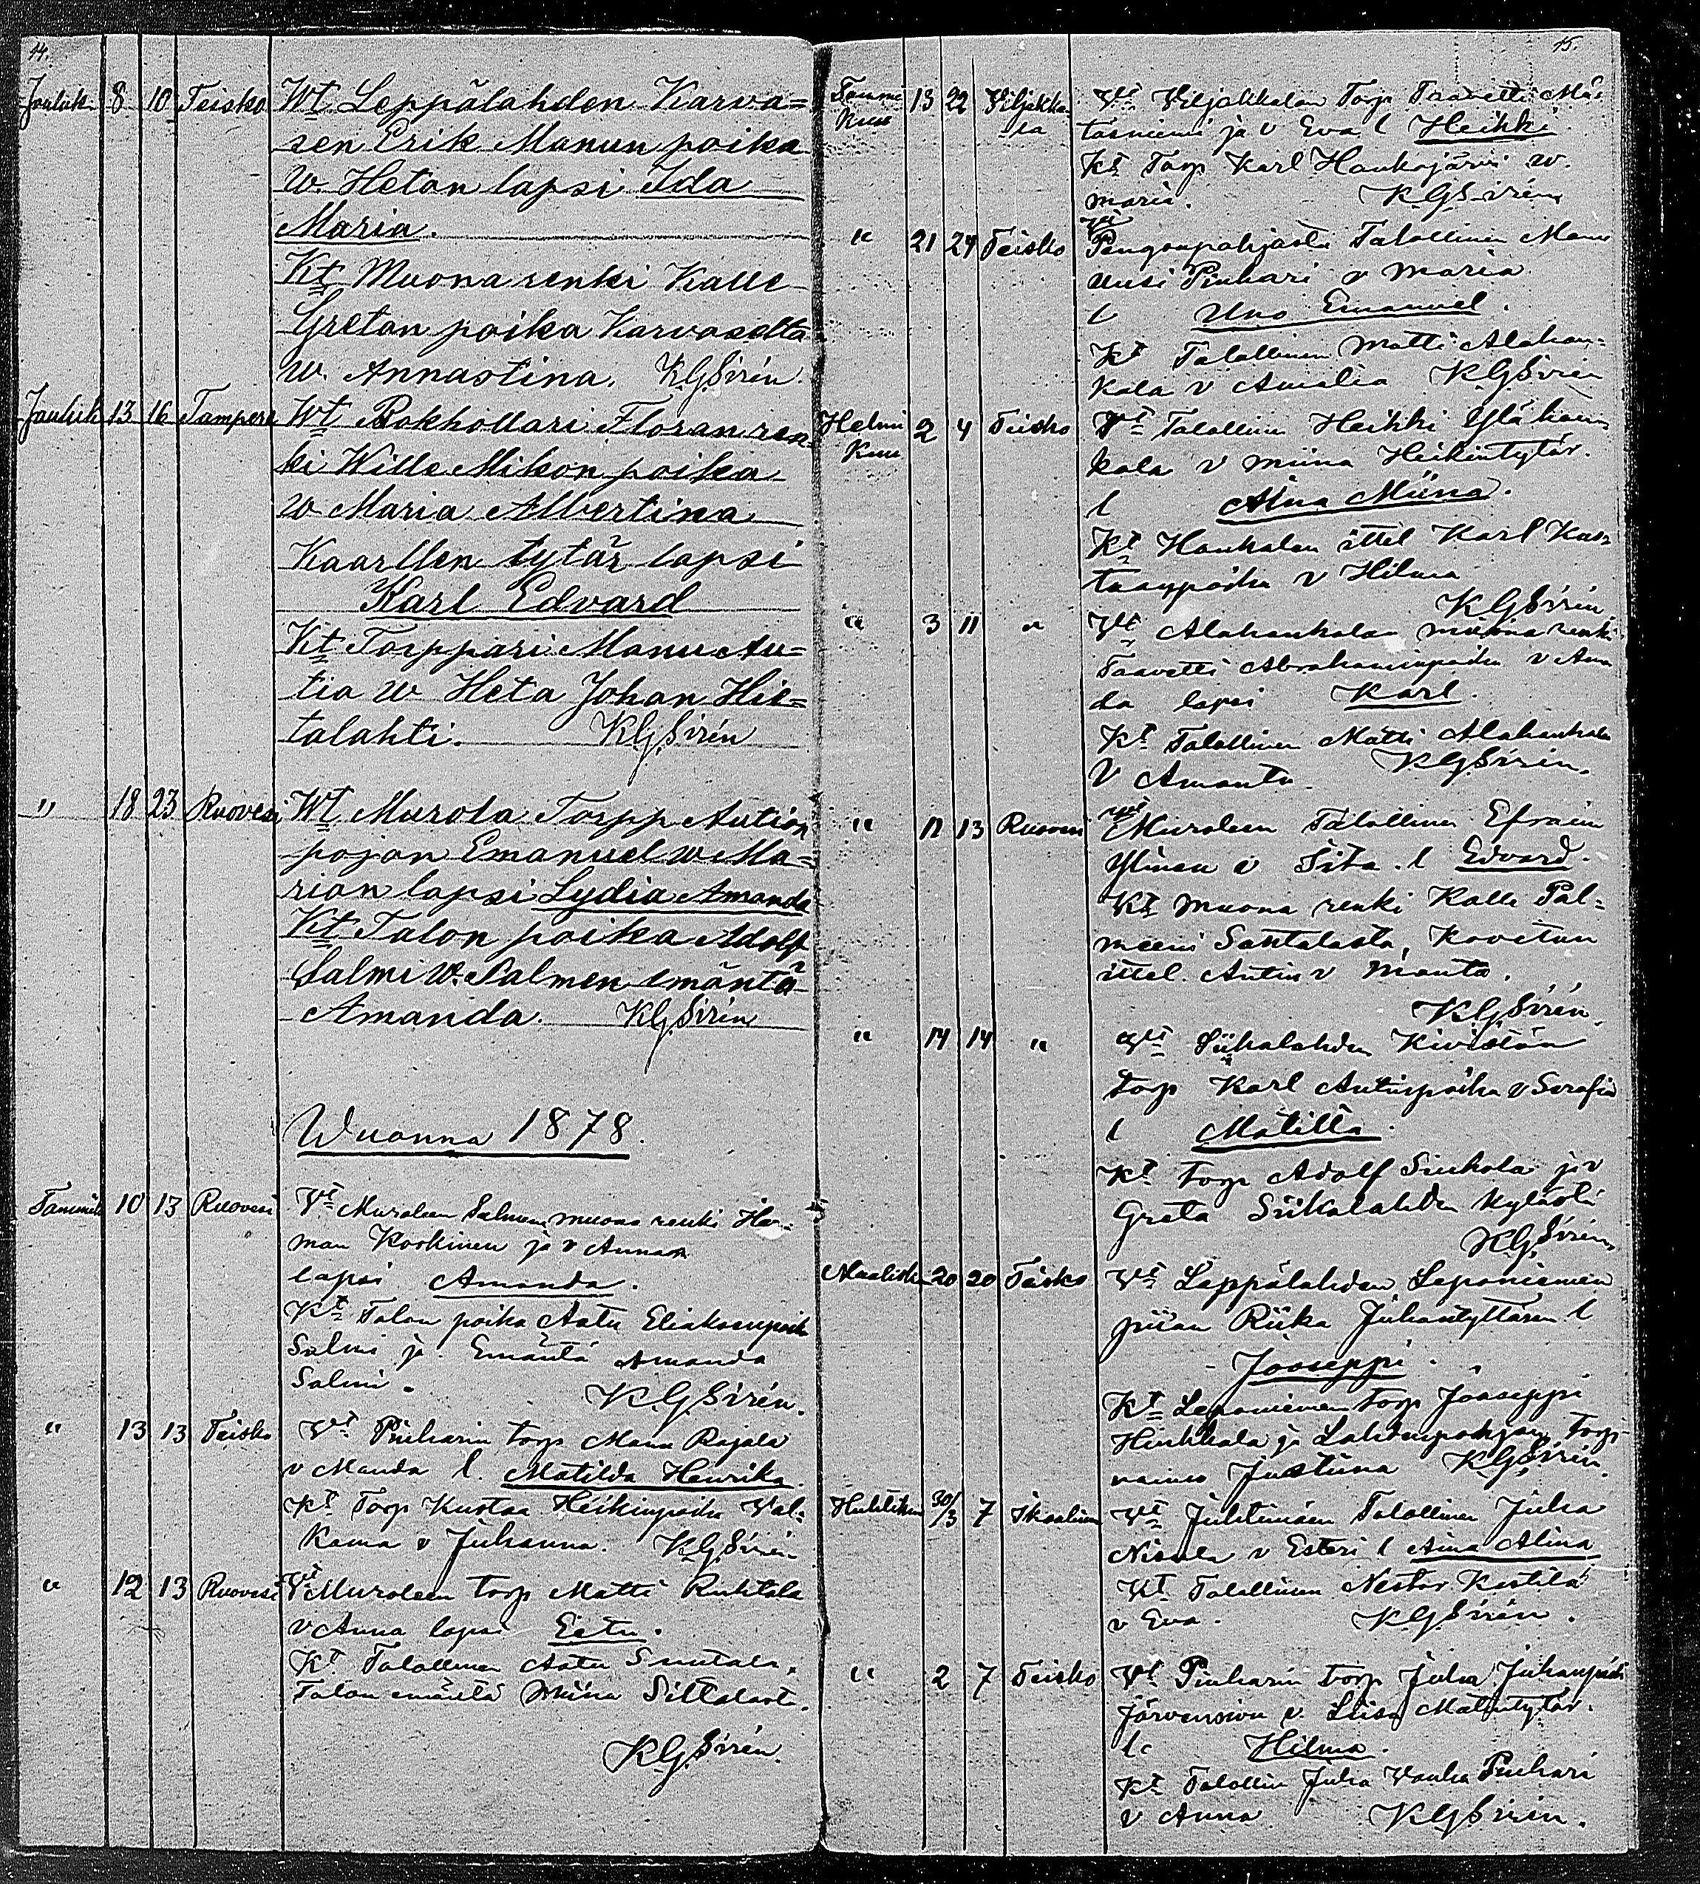 44.
Jouluk. 8 10 Teisko Wt Leppälahden Karva=
sen Erik Manun poika
w Hetan lapsi Ida
Maria.
Kt Muona renki Kalle
Gretan poika Karvaselta
w. Annastina. KGSirén
Jouluk 13 16 Tampere Wt Bokhollari Floran ren
ki Wille Mikon poika
w Maria Albertina
Kaarllen tytär lapsi
Karl Edvard
Kt Torppari Manu Au=
tio w Heta Johan Hie=
talahti. KGSirén
" 18 23 Ruovesi Wt Murola Torpp Aution
pojan Emanuel w Ma=
rian lapsi Lydia Amanda
Kt Talon poika Adolf
Salmi w. Salmen emäntä
Amanda. KGSirén
Wuonna 1878.
Tammik 10 13 Ruovesi Vt Muroleen Salmen muona renki Her=
man Koskinen ja v Annan
lapsi Amanda.
Kt Talon poika Aatu Eliakosenpoika
Salmi ja Emäntä Amanda
Salmi. K.G.Sirén.
" 13 13 Teisko Vt Piuharin torp Manu Rajala
v Manda l. Matilda Henrika.
Kt Torp Kustaa Heikinpoika Val=
kama v Juhanna. KGSirén
" 12 13 Ruovesi Vt Muroleen torp Matti Ruhtala
v Anna lapsi Eetu.
Kt Talollinen Aatu
Talon emäntä Miina
KGSirén.
15.
Tammi
Kuu 13 22 Viljakka
la Vt Viljakkalan Torp Taavetti Mä=
täsniemi ja v Eva l Heikki
Kt Torp Karl Haukojärvi w.
Maria. KGSirén
" 21 24 Teisko Vt Pengonpohjasta Talollinen Manu
Uusi Piuhari v Maria
l Uno Emanuel.
Kt Talollinen Matti Alahau=
kala v Amalia KGSirén
Helmi
Kuu 2 4 Teisko Vt Talollinen Heikki Ylähau
kala v Miina Heikintytär.
l Alma Miina.
Kt Haukalan ittel Karl Kus
taanpoika v Hilma
KGSirén
" 3 11 " Vt Alahaukalan muona renki
Taavetti Abrahaminpoika v Aman
da lapsi Karl.
Kt Talollinen Matti Alahaukala
V Amanta KGSirén.
" 11 13 Ruovesi Vt Muroleen Talollinen Efraim
Ylinen v Sita. l Edvard.
Kt Muona renki Kalle Pal=
meeni Santalasta,
ittel. Antin v Manta.
KGSirén.
" 14 14 " Vt Siikalahden Kivistön
torp Karl Antinpoika v Serafia
l Matilta.
Kt torp Adolf Siukola ja v
Greta Siikalahden kylästä
KGSirén
Maalisk 20 20 Teisko Vt Leppälahden Leponiemen
piian Riika Juhantyttären l
Jooseppi.
Kt Leponiemen torp Jooseppi
Hinkkala ja Lahdenpohjan torp
vaimo Justiina KGSirén.
Huhtikuu 30/3 7 Ikaalinen Vt Juhtimäen Talollinen Juha
Nisula v Esteri l Aina Alina
Kt Talollinen Nestor Kestilä
v Eva. KGSirén.
" 2 7 Teisko Vt Piuharin torp Juha Juhanpoika
Järvensivu v. Liisa Matintytär.
l. Hilma.
Kt Talollin Juha Vanha Piuhari
v Anna KGSirén.